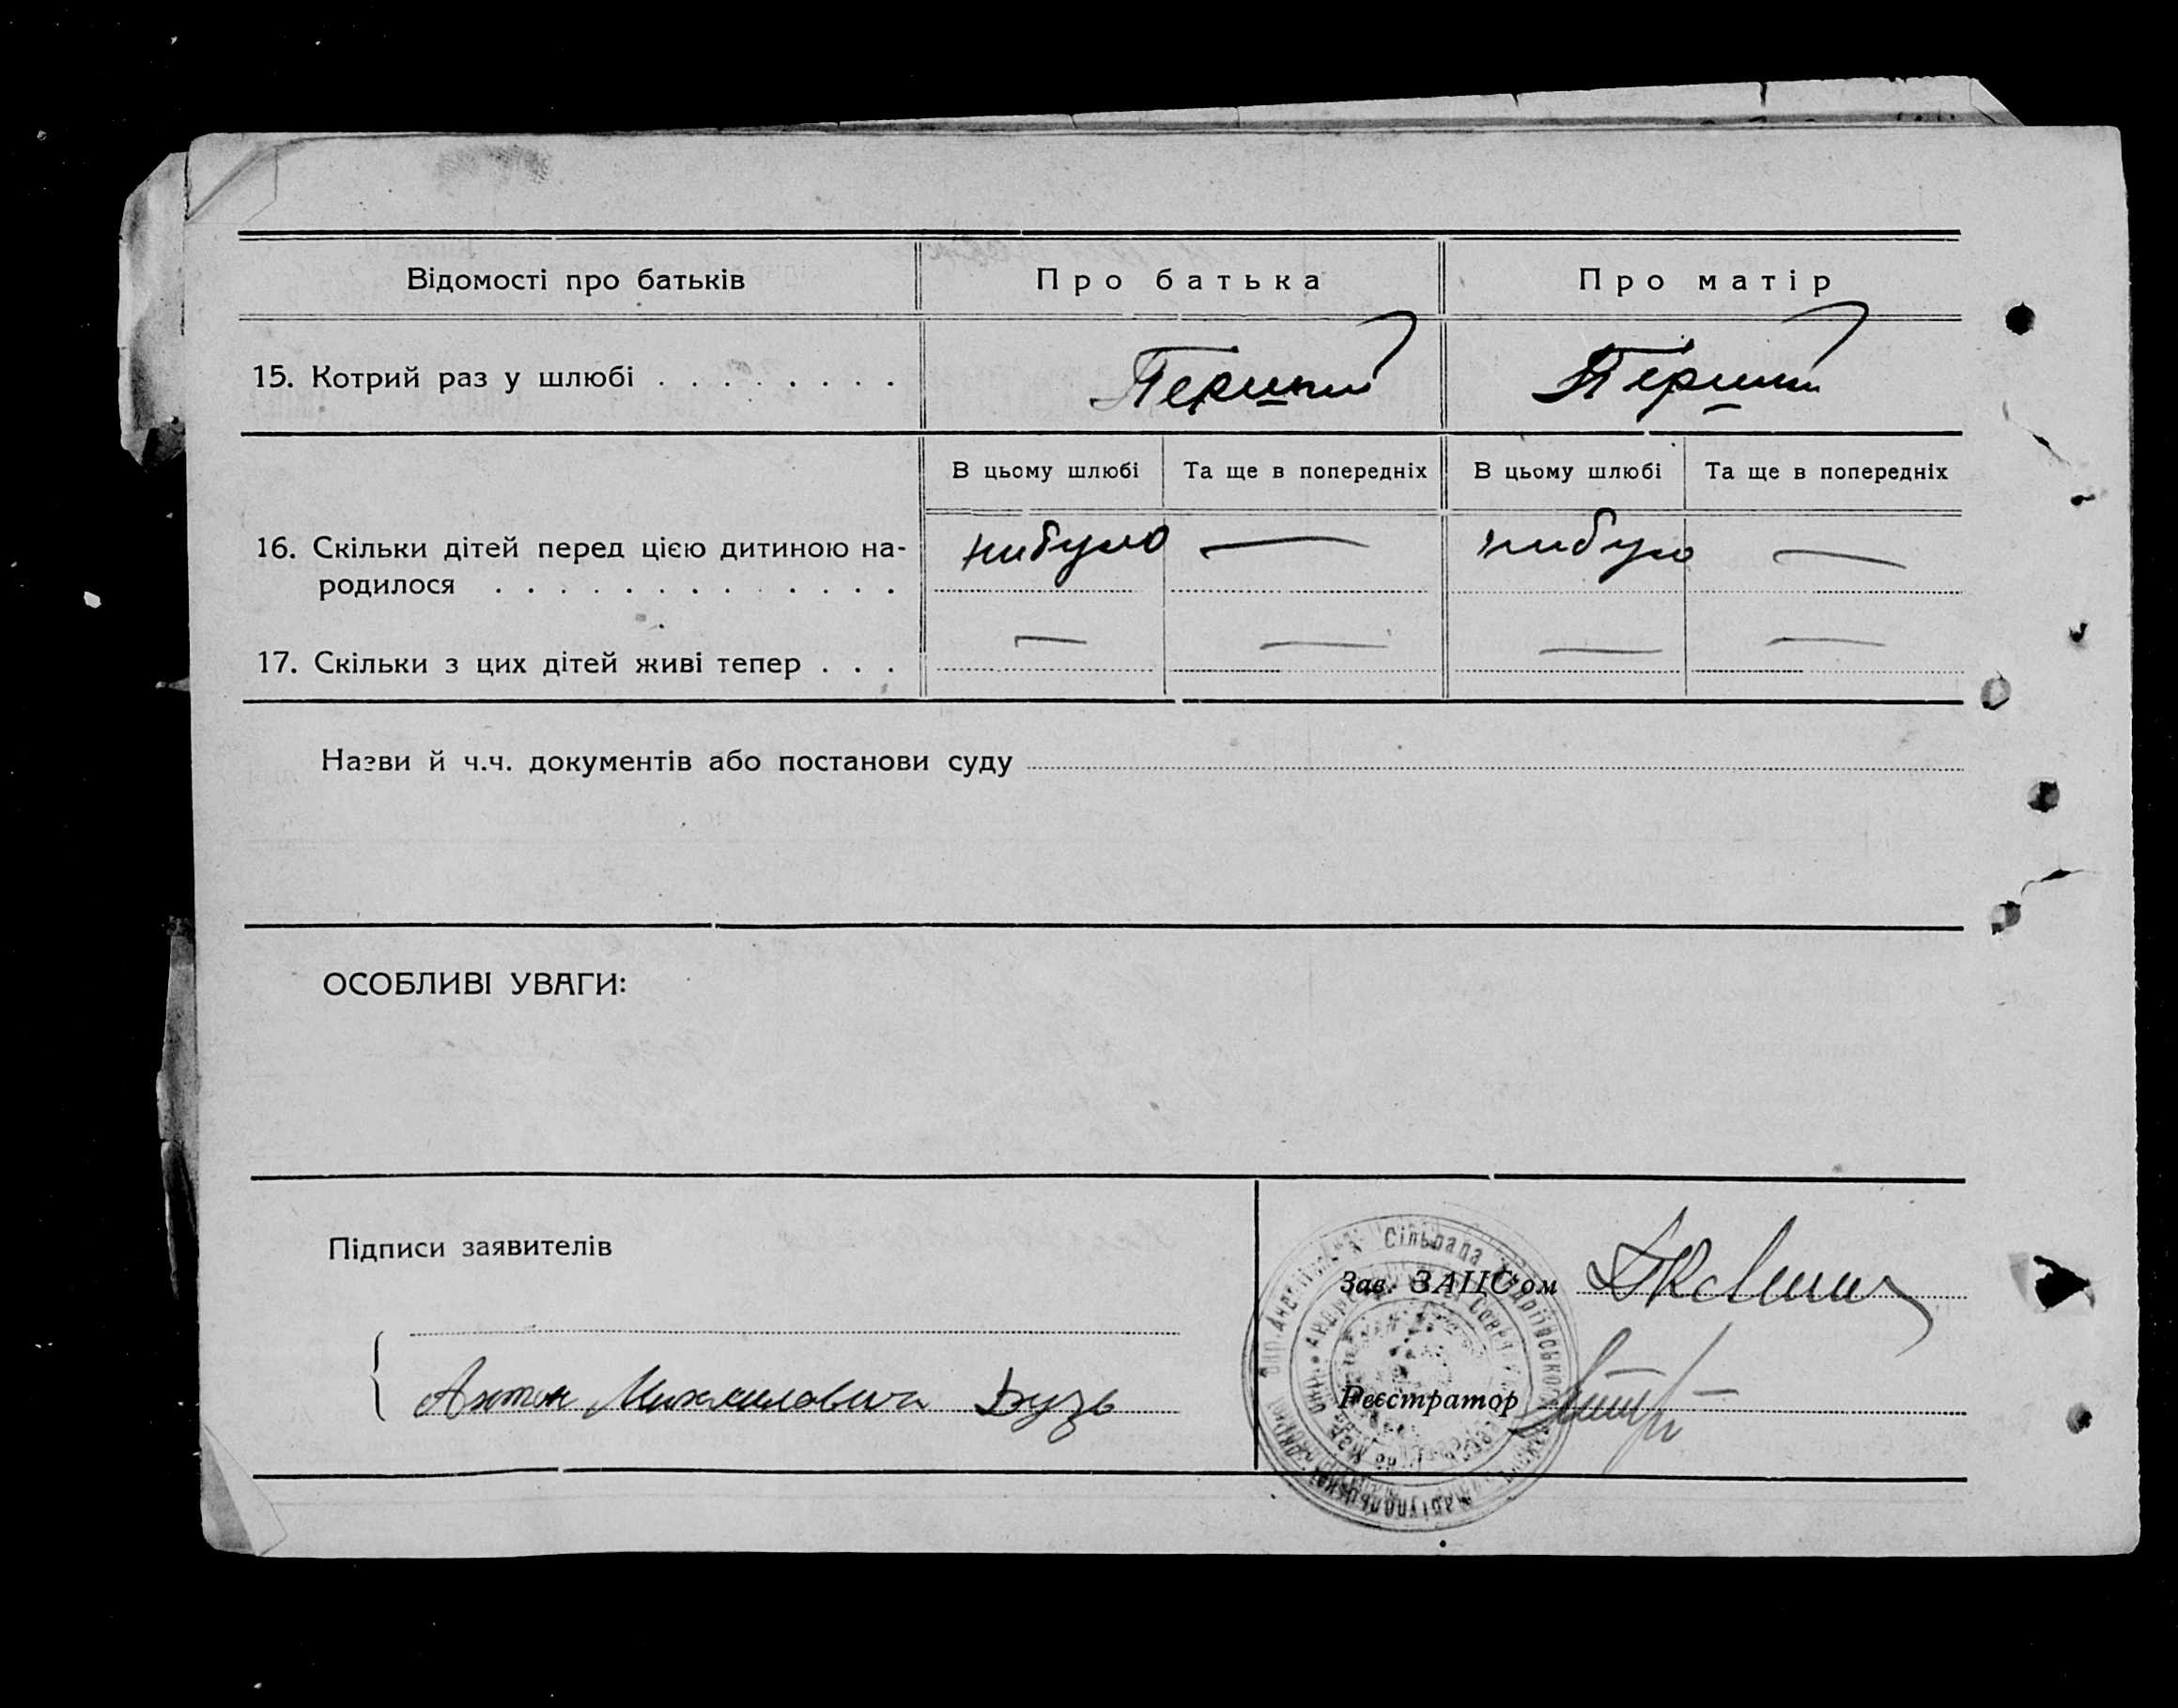 Відомості про батьків Про батька Про матір
15. Котрий раз у шлюбі . . . . . . . . Перший Перший
В цьому шлюбі Та ще в попередніх В цьому шлюбі Та ще в попередніх
16. Скільки дітей перед цією дитиною на- нибуло — нибуло —
родилося . . . . . . . . . . . . .
17. Скільки з цих дітей живі тепер . . . — — — —
Назви й ч.ч. документів або постанови суду
ОСОБЛИВІ УВАГИ:
Підписи заявителів
Зав. ЗАЦС'ом
Антон Михайлович Бузь
Реєстратор
Сільрада